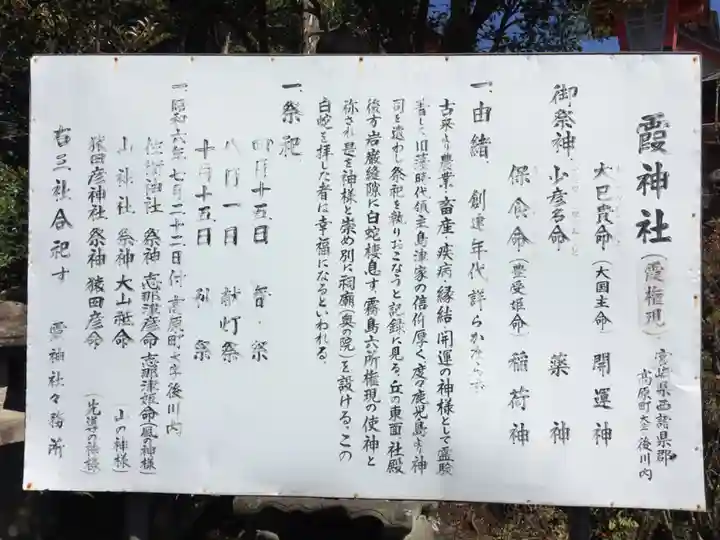 霞神社(霞権現)
宮崎県西諸県郡
高原町大字後川内
大己貴命(大国主命) 開運神
御祭神 少彦名命 薬神
保食命(豊受姫命) 稲荷神
一.由緒 創建年代詳らかならず
古来より農業、畜産、疾病、縁結、開運の神様として霊験
著しく旧藩時代領主島津家の信仰厚く、度々鹿児島より神
司を遣わし祭祀を執りおこなうと記録に見る、丘の東面、社殿
後方岩巌縫隙に白蛇棲息す、霧島六所権現の使神と
称され是を神様と崇め別に祠廟(奥の院)を設ける、この
白蛇を拝した者は幸福になるといわれる。
一.祭祀
四月廿五日 春祭
八月一日 献灯祭
十月十五日 秋祭
一.昭和六年七月二十二日付 高原町大字後川内
祭神 志那津彦命 志那津姫命(風の神様)
山神社 祭神 大山祗命 (山の神様)
猿田彦神社 祭神 猿田彦命 (先導の神様)
右三社合祀す 霞神社々務所